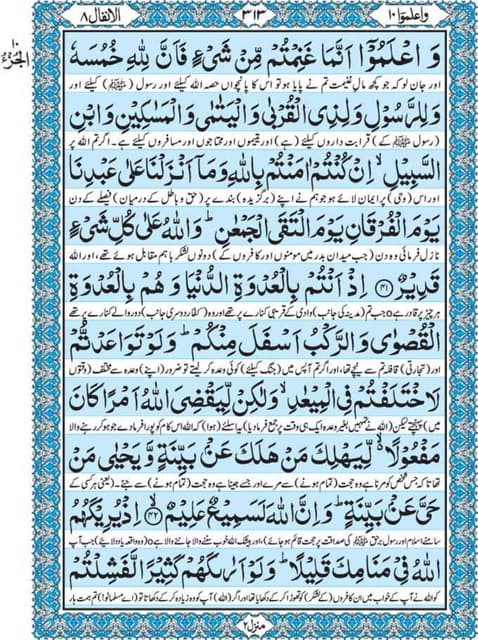 واعلموا ١٠
٣١٣
الانفال ٨
الجزء ١٠
وَ اعْلَمُوْۤا اَنَّمَا غَنِمْتُمْ مِّنْ شَیْءٍ فَاَنَّ لِلّٰهِ خُمُسَهٗ
اور جان لو کہ جو کچھ مالِ غنیمت تم نے پایا ہو تو اس کا پانچواں حصہ اللہ کیلئے اور رسول (ﷺ) کیلئے اور
وَ لِلرَّسُوْلِ وَ لِذِی الْقُرْبٰی وَ الْیَتٰمٰی وَ الْمَسٰكِیْنِ وَ ابْنِ
(رسول ﷺ کے) قرابت داروں کیلئے (ہے) اور یتیموں اور محتاجوں اور مسافروں کیلئے ہے۔ اگر تم اللہ پر
السَّبِیْلِ ۙ اِنْ كُنْتُمْ اٰمَنْتُمْ بِاللّٰهِ وَ مَاۤ اَنْزَلْنَا عَلٰی عَبْدِنَا
اور اس (وحی) پر ایمان لائے ہو جو ہم نے اپنے (برگزیدہ) بندے پر (حق و باطل کے درمیان) فیصلے کے دن
یَوْمَ الْفُرْقَانِ یَوْمَ الْتَقَی الْجَمْعٰنِ ؕ وَ اللّٰهُ عَلٰی كُلِّ شَیْءٍ
نازل فرمائی وہ دن (جب میدانِ بدر میں مومنوں اور کافروں کے) دونوں لشکر باہم مقابل ہوئے تھے، اور اللہ
قَدِیْرٌ ﴿۴۱﴾ اِذْ اَنْتُمْ بِالْعُدْوَةِ الدُّنْیَا وَ هُمْ بِالْعُدْوَةِ
ہر چیز پر قادر ہے o جب تم (مدینہ کی جانب) وادی کے قریبی کنارے پر تھے اور وہ (کفار دوسری جانب) دور والے کنارے پر تھے
الْقُصْوٰی وَ الرَّكْبُ اَسْفَلَ مِنْكُمْ ؕ وَ لَوْ تَوَاعَدْتُّمْ
اور (تجارتی) قافلہ تم سے نیچے تھا، اور اگر تم آپس میں (جنگ کیلئے) کوئی وعدہ کر لیتے تو ضرور (اپنے) وعدہ سے مختلف (وقتوں
لَاخْتَلَفْتُمْ فِی الْمِیْعٰدِ ۙ وَ لٰكِنْ لِّیَقْضِیَ اللّٰهُ اَمْرًا كَانَ
میں) پہنچتے لیکن (اللہ نے تمہیں بغیر وعدہ ایک ہی وقت پر جمع فرما دیا) یہ اسلئے (ہوا) کہ اللہ اس کام کو پورا فرما دے جو ہو کر رہنے والا
مَفْعُوْلًا ۙ۬ لِّیَهْلِكَ مَنْ هَلَكَ عَنْۢ بَیِّنَةٍ وَّ یَحْیٰی مَنْ
تھا تا کہ جس شخص کو مرنا ہے وہ حجت (تمام ہونے) سے مرے اور جسے جینا ہے وہ حجت (تمام ہونے) سے جئے۔ (یعنی ہر کسی کے
حَیَّ عَنْۢ بَیِّنَةٍ ؕ وَ اِنَّ اللّٰهَ لَسَمِیْعٌ عَلِیْمٌ ﴿ۙ۴۲﴾ اِذْ یُرِیْكَهُمُ
سامنے اسلام اور رسولِ برحق ﷺ کی صداقت پر حجت قائم ہو جائے)، اور بیشک اللہ خوب سننے والا جاننے والا ہے o (وہ واقعہ یاد دلائیے) جب آپ
اللّٰهُ فِیْ مَنَامِكَ قَلِیْلًا ؕ وَ لَوْ اَرٰىكَهُمْ كَثِیْرًا لَّفَشِلْتُمْ
کو اللہ نے آپ کے خواب میں ان کافروں (کے لشکر) کو تھوڑا کر کے دکھایا تھا اور اگر (اللہ) آپ کو وہ زیادہ کر کے دکھاتا تو (اے مسلمانو!) تم ہمت ہار
منزل ٢